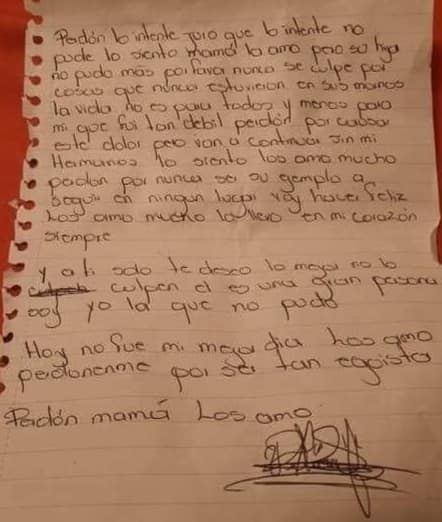 Perdón lo intente juro que lo intente no
pude lo siento mamá la amo pero su hija
no pudo mas por favor nunca se culpe por
cosas que nunca estuvieron en sus manos
la vida no es para todos y menos para
mi que fui tan debil perdón por causar
este dolor pero van a continuar sin mi
Hermanos lo siento los amo mucho
perdon por nunca ser su ejemplo a
seguir en ningun lugar voy haver feliz
Los amo mucho los llevo en mi corazón
siempre
y a ti solo te deseo lo mejor no lo
culpen el es una gran persona
soy yo la que no pudo
Hoy no fue mi mejor dia los amo
perdonenme por ser tan egoista
Perdón mamá Los amo